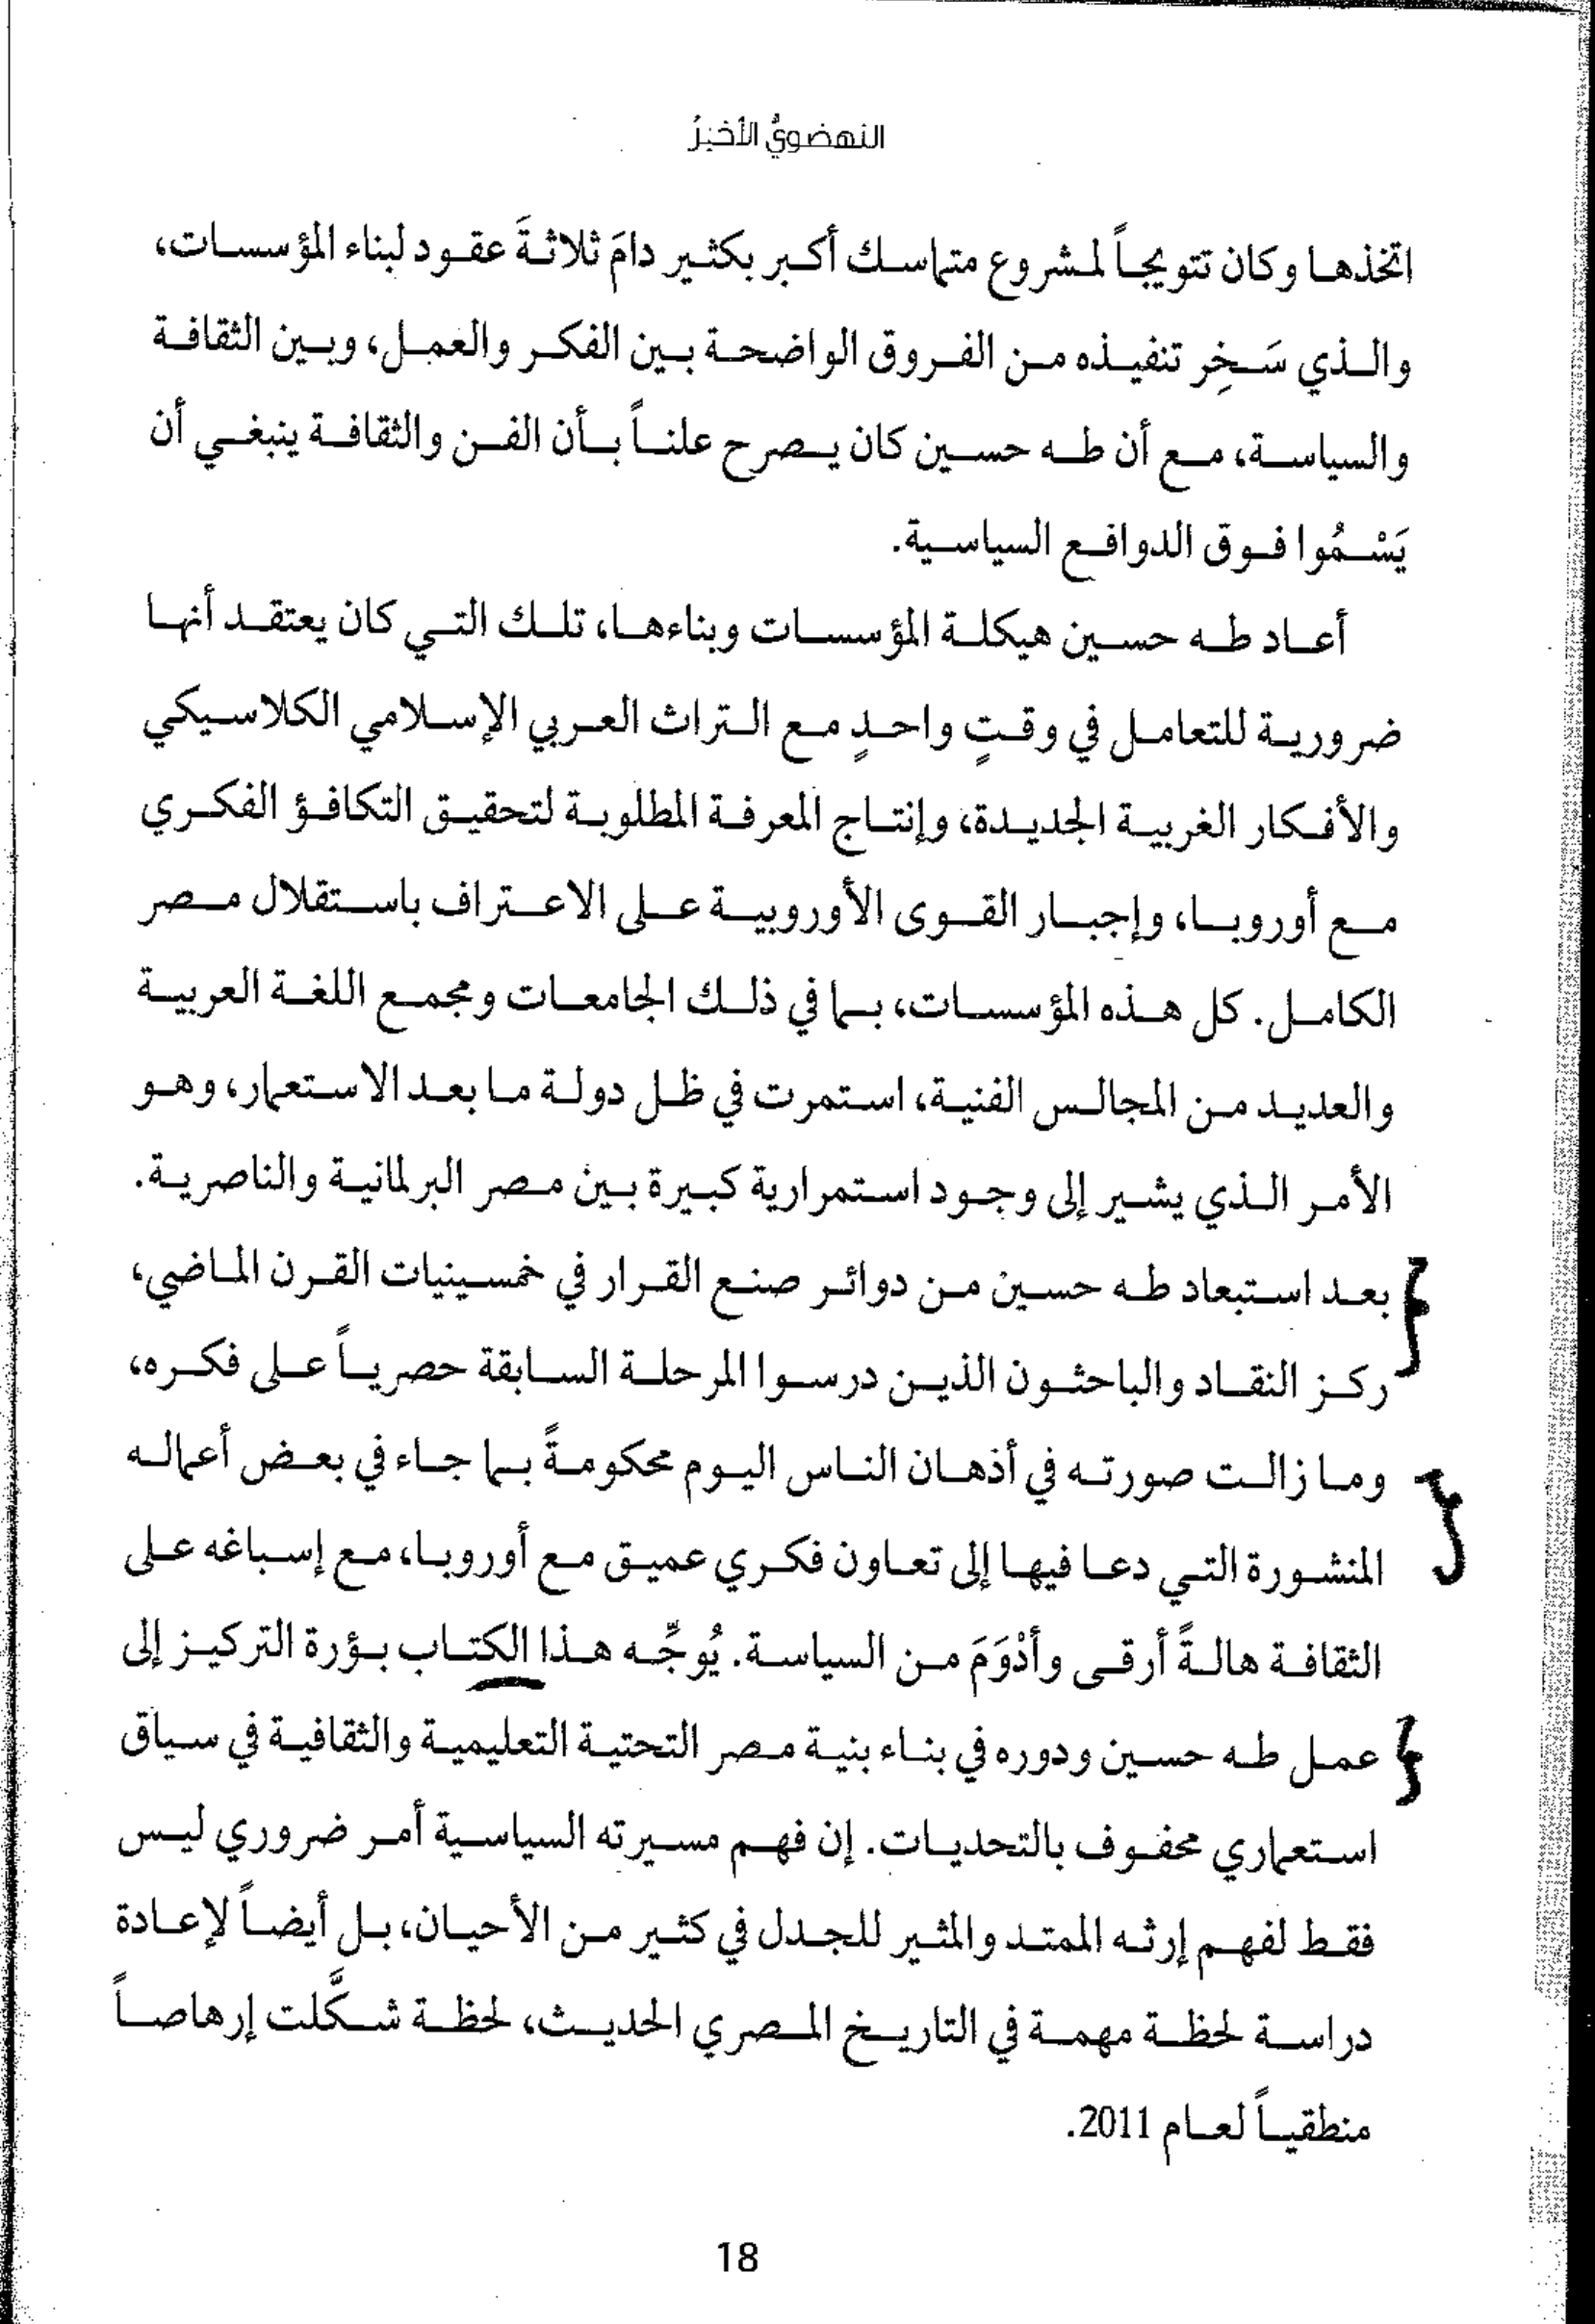 النهضويُّ الأخيرُ
اتخذها وكان تتويجاً لمشروع متماسك أكبر بكثير دامَ ثلاثةَ عقود لبناء المؤسسات،
والذي سَخِر تنفيذه من الفروق الواضحة بين الفكر والعمل، وبين الثقافة
والسياسة، مع أن طه حسين كان يصرح علناً بأن الفن والثقافة ينبغي أن
يَسْمُوا فوق الدوافع السياسية.
أعاد طه حسين هيكلة المؤسسات وبناءها، تلك التي كان يعتقد أنها
ضرورية للتعامل في وقتٍ واحدٍ مع التراث العربي الإسلامي الكلاسيكي
والأفكار الغربية الجديدة، وإنتاج المعرفة المطلوبة لتحقيق التكافؤ الفكري
مع أوروبا، وإجبار القوى الأوروبية على الاعتراف باستقلال مصر
الكامل. كل هذه المؤسسات، بما في ذلك الجامعات ومجمع اللغة العربية
والعديد من المجالس الفنية، استمرت في ظل دولة ما بعد الاستعمار، وهو
الأمر الذي يشير إلى وجود استمرارية كبيرة بين مصر البرلمانية والناصرية.
بعد استبعاد طه حسين من دوائر صنع القرار في خمسينيات القرن الماضي،
ركز النقاد والباحثون الذين درسوا المرحلة السابقة حصرياً على فكره،
وما زالت صورته في أذهان الناس اليوم محكومةً بما جاء في بعض أعماله
المنشورة التي دعا فيها إلى تعاون فكري عميق مع أوروبا، مع إسباغه على
الثقافة هالةً أرقى وأدْوَمَ من السياسة. يُوجِّه هذا الكتاب بؤرة التركيز إلى
عمل طه حسين ودوره في بناء بنية مصر التحتية التعليمية والثقافية في سياق
استعماري محفوف بالتحديات. إن فهم مسيرته السياسية أمر ضروري ليس
فقط لفهم إرثه الممتد والمثير للجدل في كثير من الأحيان، بل أيضاً لإعادة
دراسة لحظة مهمة في التاريخ المصري الحديث، لحظة شكَّلت إرهاصاً
منطقياً لعام 2011.
18